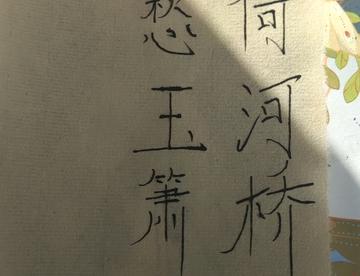 河桥
愁玉箫